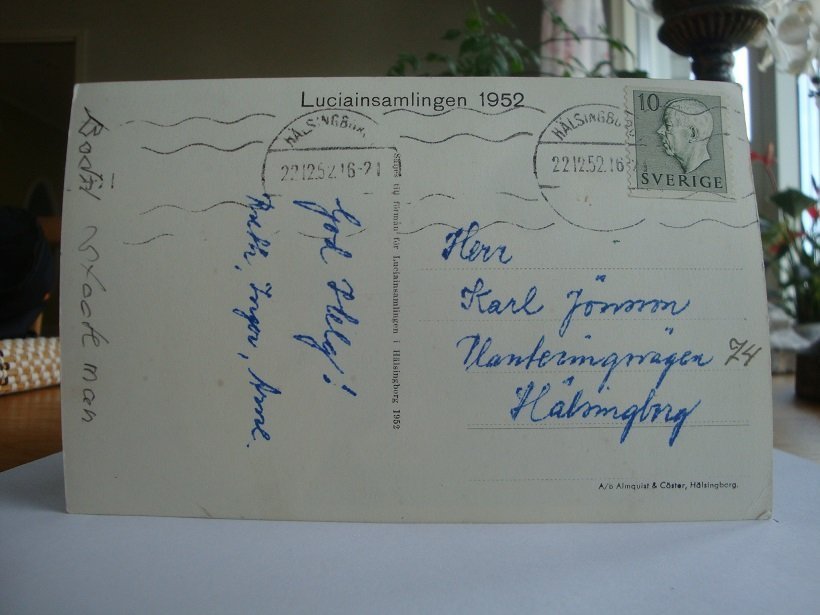 Luciainsamlingen 1952
HÄLSINGBORG
22.12.52.16-21
HÄLSINGBO
22.12.52.16
10
SVERIGE
God Helg!
Inger, Arne.
Säljes till förmån för Luciainsamlingen i Hälsingborg 1952
Herr
Karl Jönsson
Planteringsvägen 74
Hälsingborg
A/b Almquist & Cöster, Hälsingborg.
Bodil
man